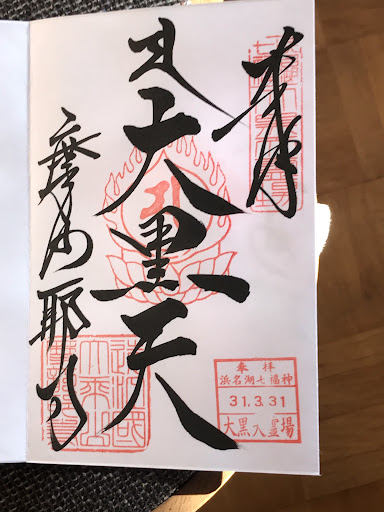 奉拝
大黒天
摩訶耶寺
奉拝
浜名湖七福神
31.3.31
大黒天霊場